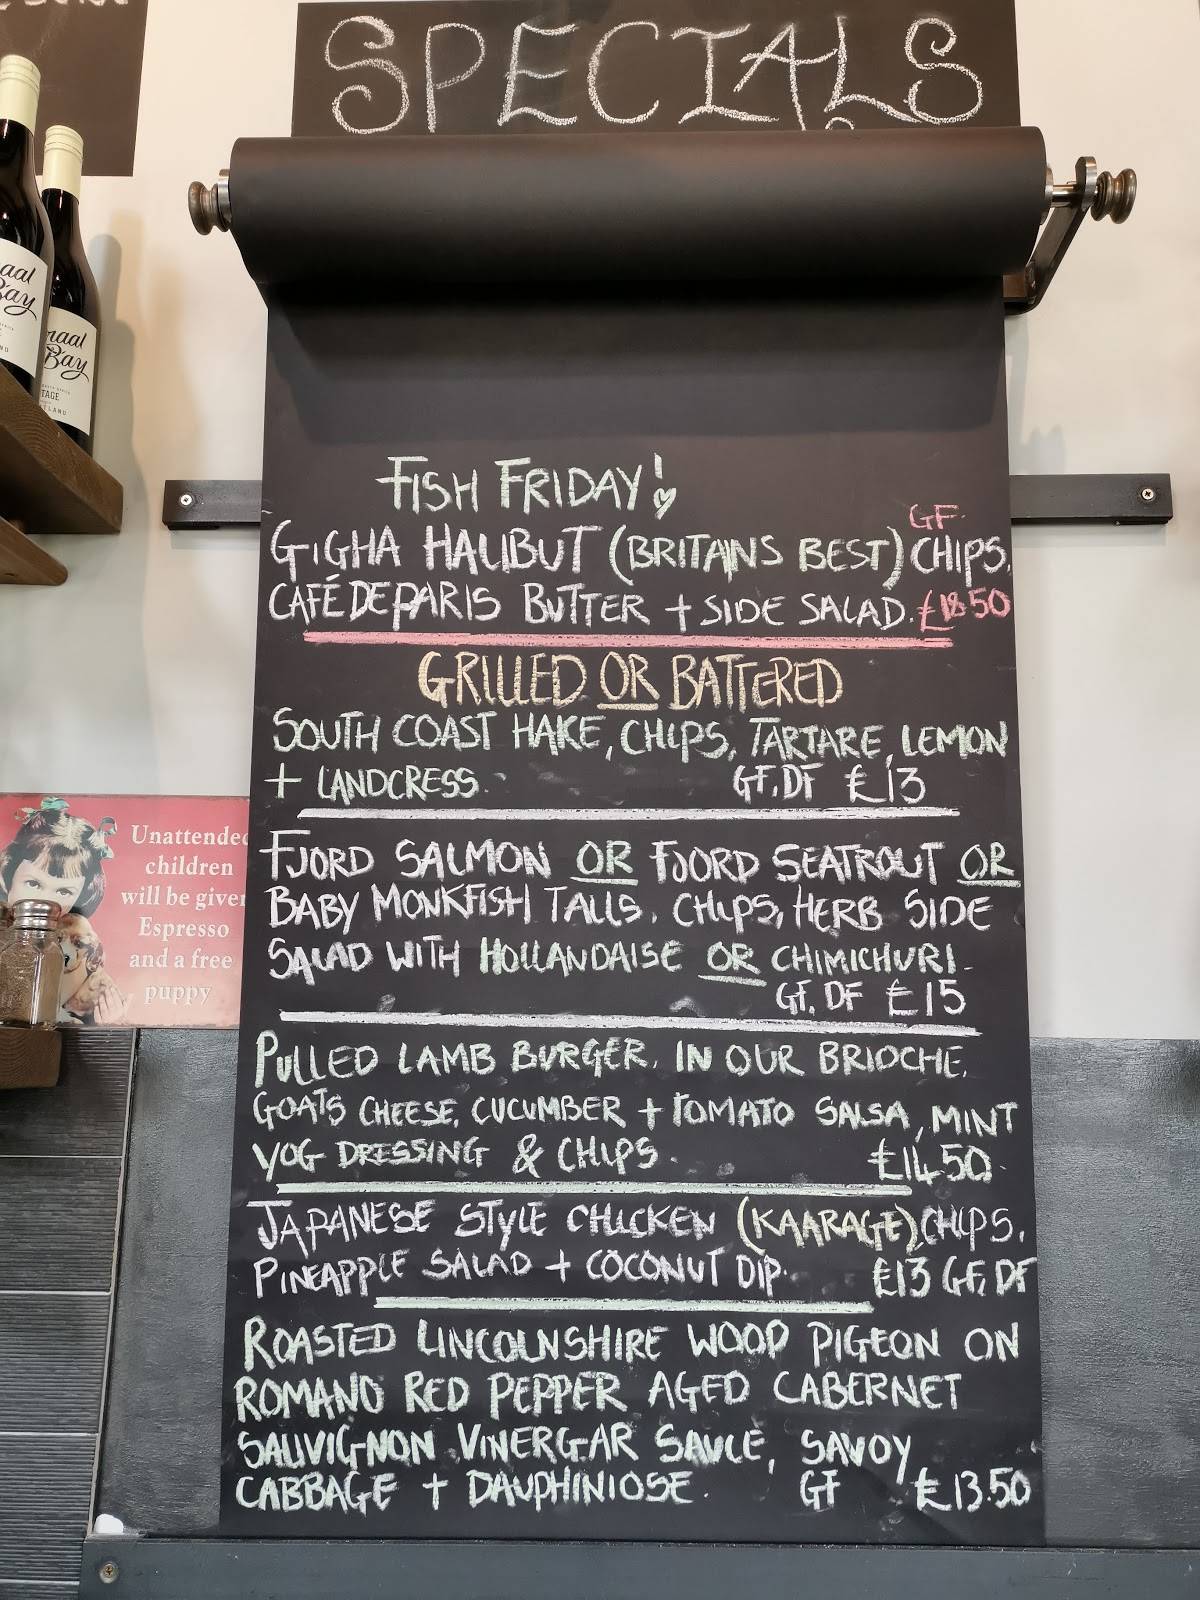 SPECIALS
FISH FRIDAY!
GF.
GIGHA HALIBUT (BRITAINS BEST) CHIPS,
CAFÉ DE PARIS BUTTER + SIDE SALAD. £18.50
GRILLED OR BATTERED
SOUTH COAST HAKE, CHIPS, TARTARE, LEMON
+ LANDCRESS. GF, DF £13
FJORD SALMON OR FJORD SEATROUT OR
BABY MONKFISH TAILS, CHIPS, HERB SIDE
SALAD WITH HOLLANDAISE OR CHIMICHURI.
GF, DF £15
PULLED LAMB BURGER, IN OUR BRIOCHE,
GOATS CHEESE, CUCUMBER + TOMATO SALSA, MINT
YOG DRESSING & CHIPS. £14.50.
JAPANESE STYLE CHICKEN (KAARAGE), CHIPS,
PINEAPPLE SALAD + COCONUT DIP. £13 GF, DF
ROASTED LINCOLNSHIRE WOOD PIGEON ON
ROMANO RED PEPPER AGED CABERNET
SAUVIGNON VINERGAR SAUCE, SAVOY
CABBAGE + DAUPHINIOSE. GF £13.50
Unattended
children
will be given
Espresso
and a free
puppy
aal
Bay
raal
Bay
TAGE